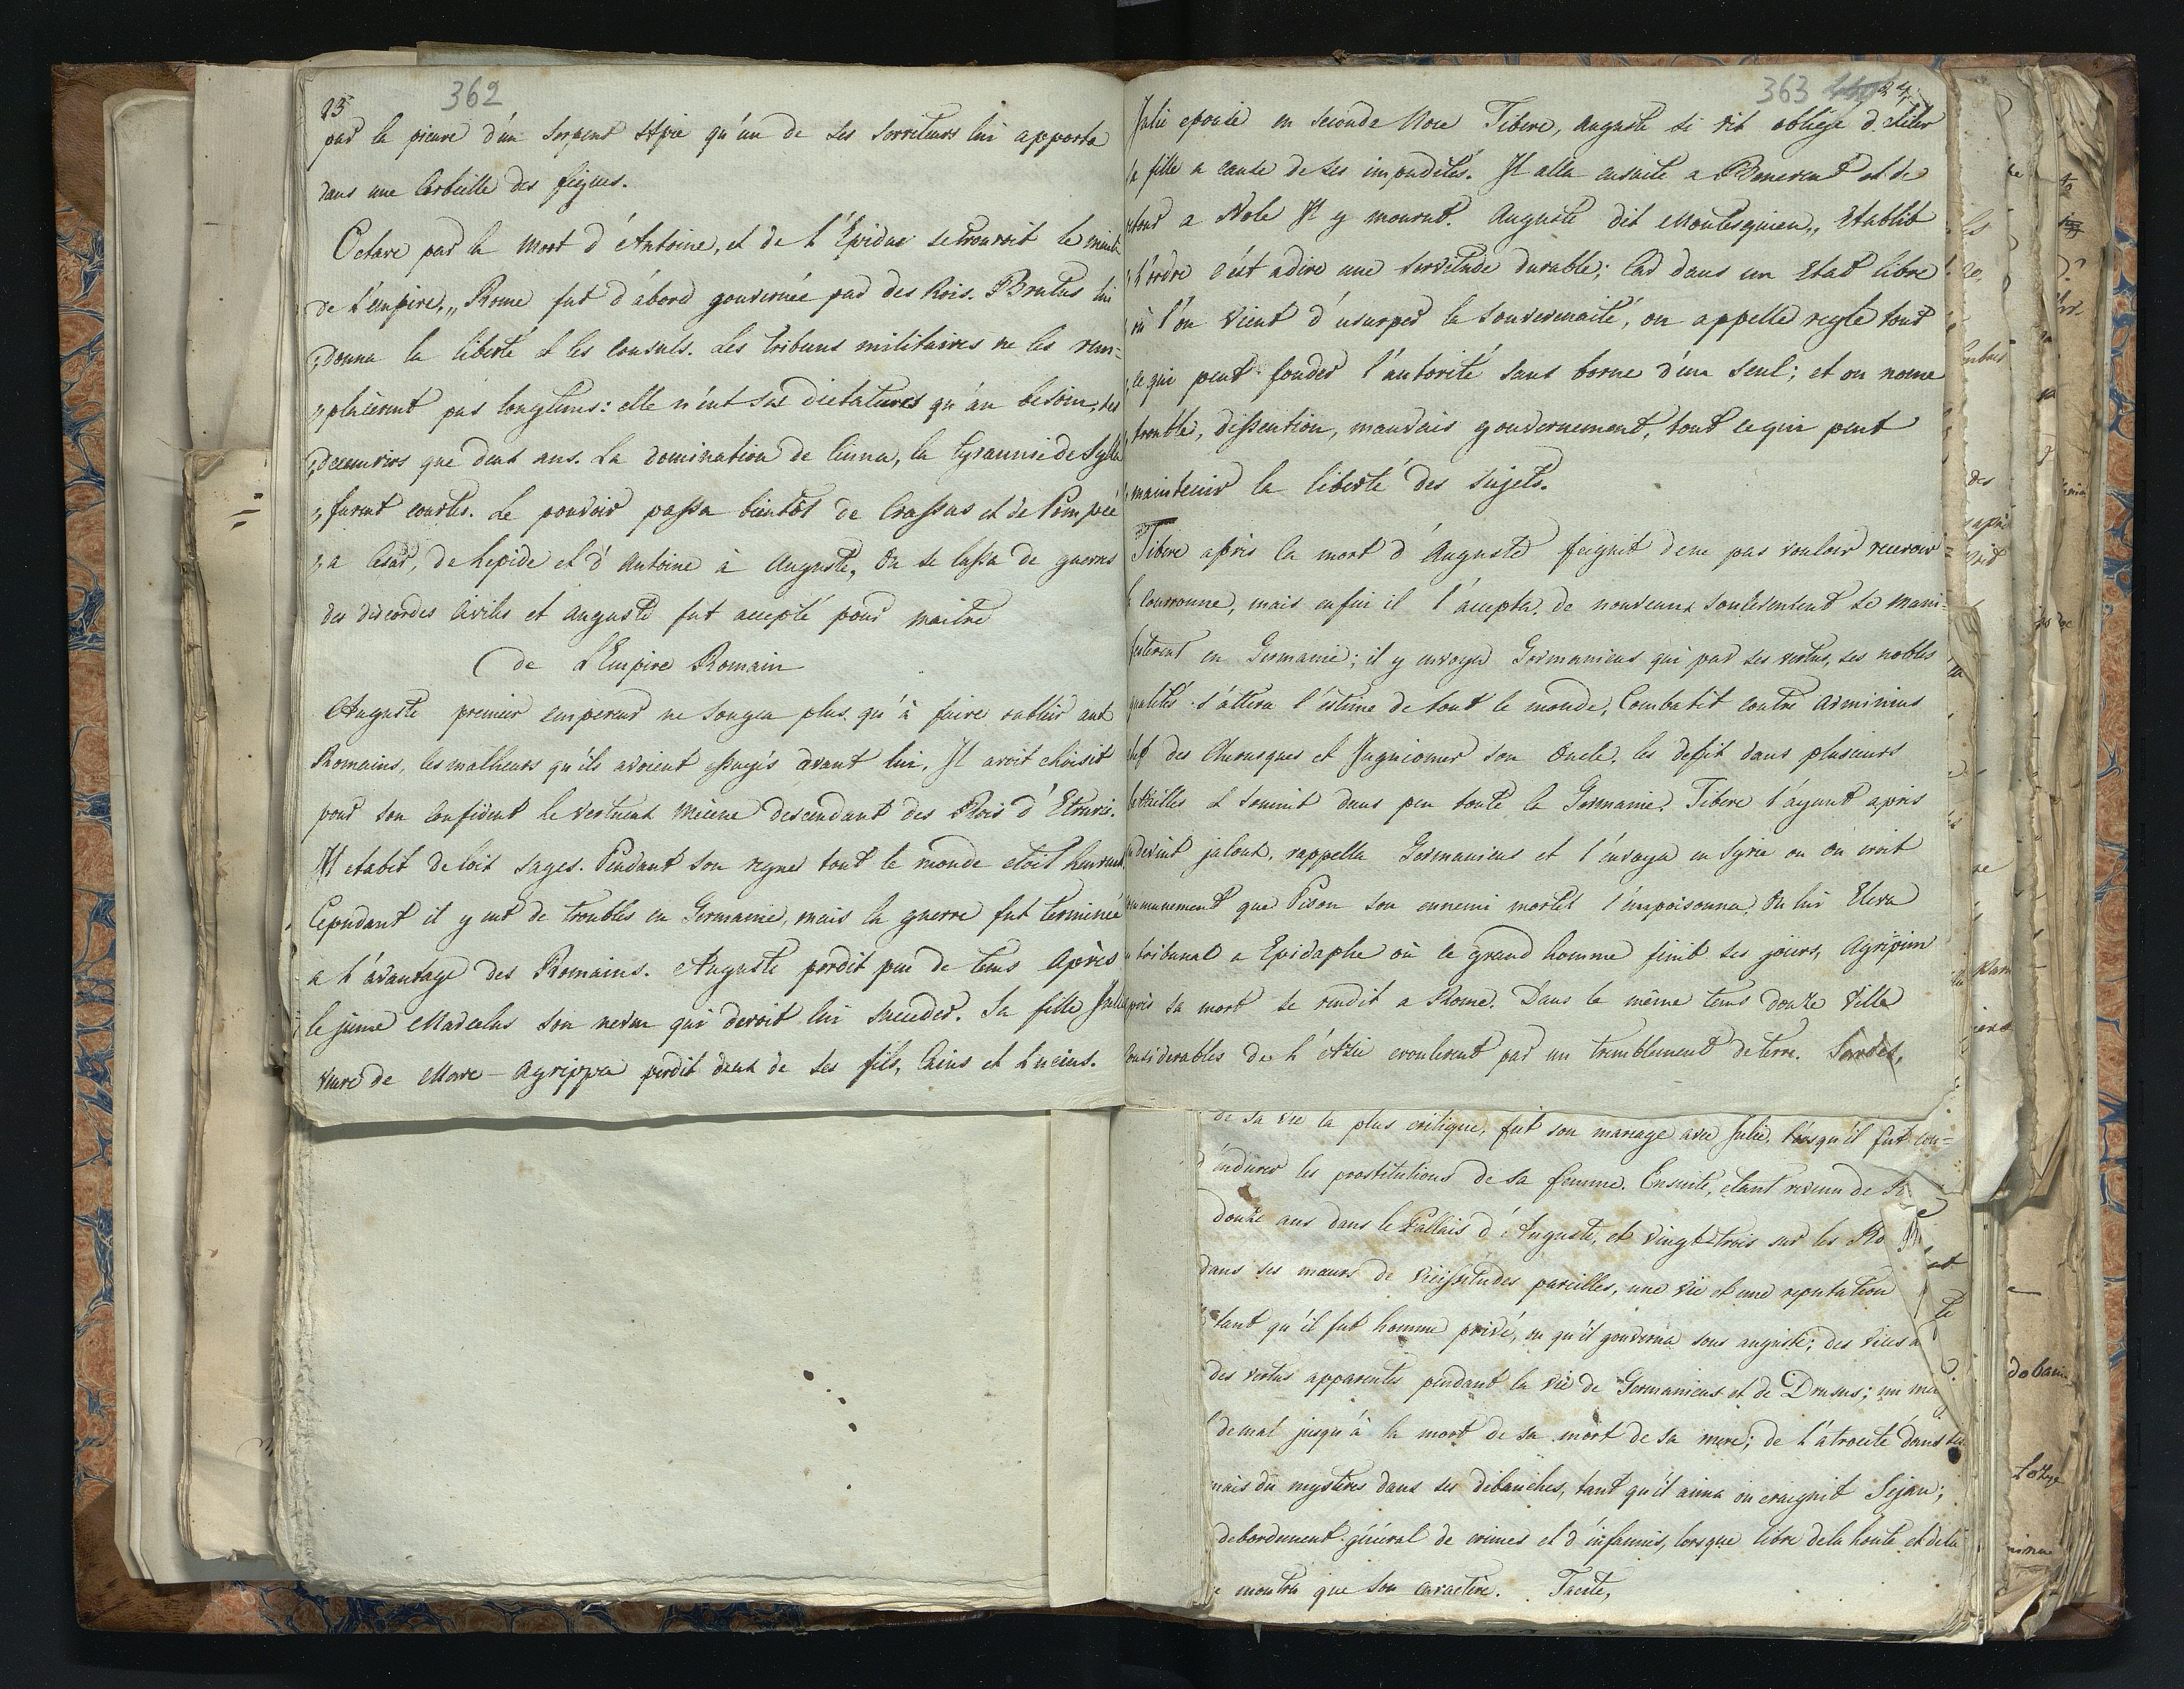 362
23
par la picure d'un Serpent Aspic qu'un de ses serviteurs lui apporta
dans une Corbeille des figues.
Octave par la mort d'Antoine, et de L'Epidus se trouvoit le maitre
de L'empire. „Rome fut d'abord gouvernée par des Rois. Brutus lui
„donna la liberté & les Consuls. Les tribuns militaires ne les rem=
„placèrent pas longtems: elle n'eut des dictatures qu'au besoin, des
„decemvirs que deux ans. La domination de Cinna, la tyrannie de Sylla
„furent courtes. Le pouvoir passa bientôt de Crassus et de Pompée
„a César, de Lepide et d'Antoine à Auguste. On se lassa de guerres
des discordes Civiles et Auguste fut accepté pour maitre
de L'Empire Romain
Auguste premier empereur ne songea plus qu'à faire oublier aux
Romains, les malheurs qu'ils avoient essuyés avant lui. Il avoit choisit
pour son Confident le vertueux Mécene descendant des Rois d'Etrurie.
Il etabit de loix sages. Pendant son regne tout le monde etoit heureux.
Cependant il y eut de troubles en Germanie, mais la guerre fut terminée
a l'avantage des Romains. Auguste perdit peu de tems Après
le jeune Marcelus son neveu qui devoit lui succeder. Sa fille Julie
veuve de Marc-Agrippa perdit deux de ses fils, Caius et Lucius.
363
24
Julie epousa en seconde Noce Tibere, Auguste se vit obligé d'exiler
sa fille a cause de ses impudités. Il alla ensuite a Benevent et de
retour a Nole Il y mourut. Auguste dit Montesquieu „Etablit
„L'ordre c'est adire une servitude durable; Car dans un Etat libre
„où l'on vient d'usurper la souveraineté, on appelle regle tout
„ce qui peut fonder l'autorité sans borne d'un seul; et on nome
„trouble, dissention, mauvais gouvernement, tout ce qui peut
„maintenir la liberté des sujets.
Tibere après la mort d'Auguste feignit de ne pas vouloir recevoir
la Couronne, mais enfin il l'accepta. de nouveaux soulevement se mani=
festerent en Germanie; il y envoya Germanicus qui par ses vertus, ses nobles
qualités s'attira l'estime de tout le monde, Combatit contre Arminius
chef des Cherusques et Inguiomer son Oncle, les defit dans plusieurs
batailles & soumit dans peu toute la Germanie. Tibere l'ayant apris
en devint jaloux, rappella Germanicus et l'envoya en Syrie ou on croit
communement que Pison son ennemi mortel l'empoisonna. On lui Eleva
un tribunal a Epidaphe où ce grand homme finit ses jours, Agripine
après sa mort se rendit a Rome. Dans le même tems douze Ville
Considerables de L'Asie croulerent par un tremblement de terre. Sardes,
de sa vie la plus critique, fut son mariage avec Julie, lorsqu'il fut con=
d'endurer les prostitutions de sa femme. Ensuite, etant revenu de
douze ans dans le Pallais d'Auguste, et vingt-trois sur les Ro
dans ses mœurs de vicissitudes pareilles, une vie et une reputation
tant qu'il fut homme privé, ou qu'il gouverna sous auguste; des vices a
des vertus apparentes pendant la vie de Germanicus et de Drusus; un me
de mal jusqu'à la mort de sa mort de sa mere; de l'atrocité dans
mais du mystères dans ses débauches, tant qu'il aima ou craignit Sejan;
debordement général de crimes et d'infamies, lorsque libre de la honte et de la
montra que son caractère. Tacite,